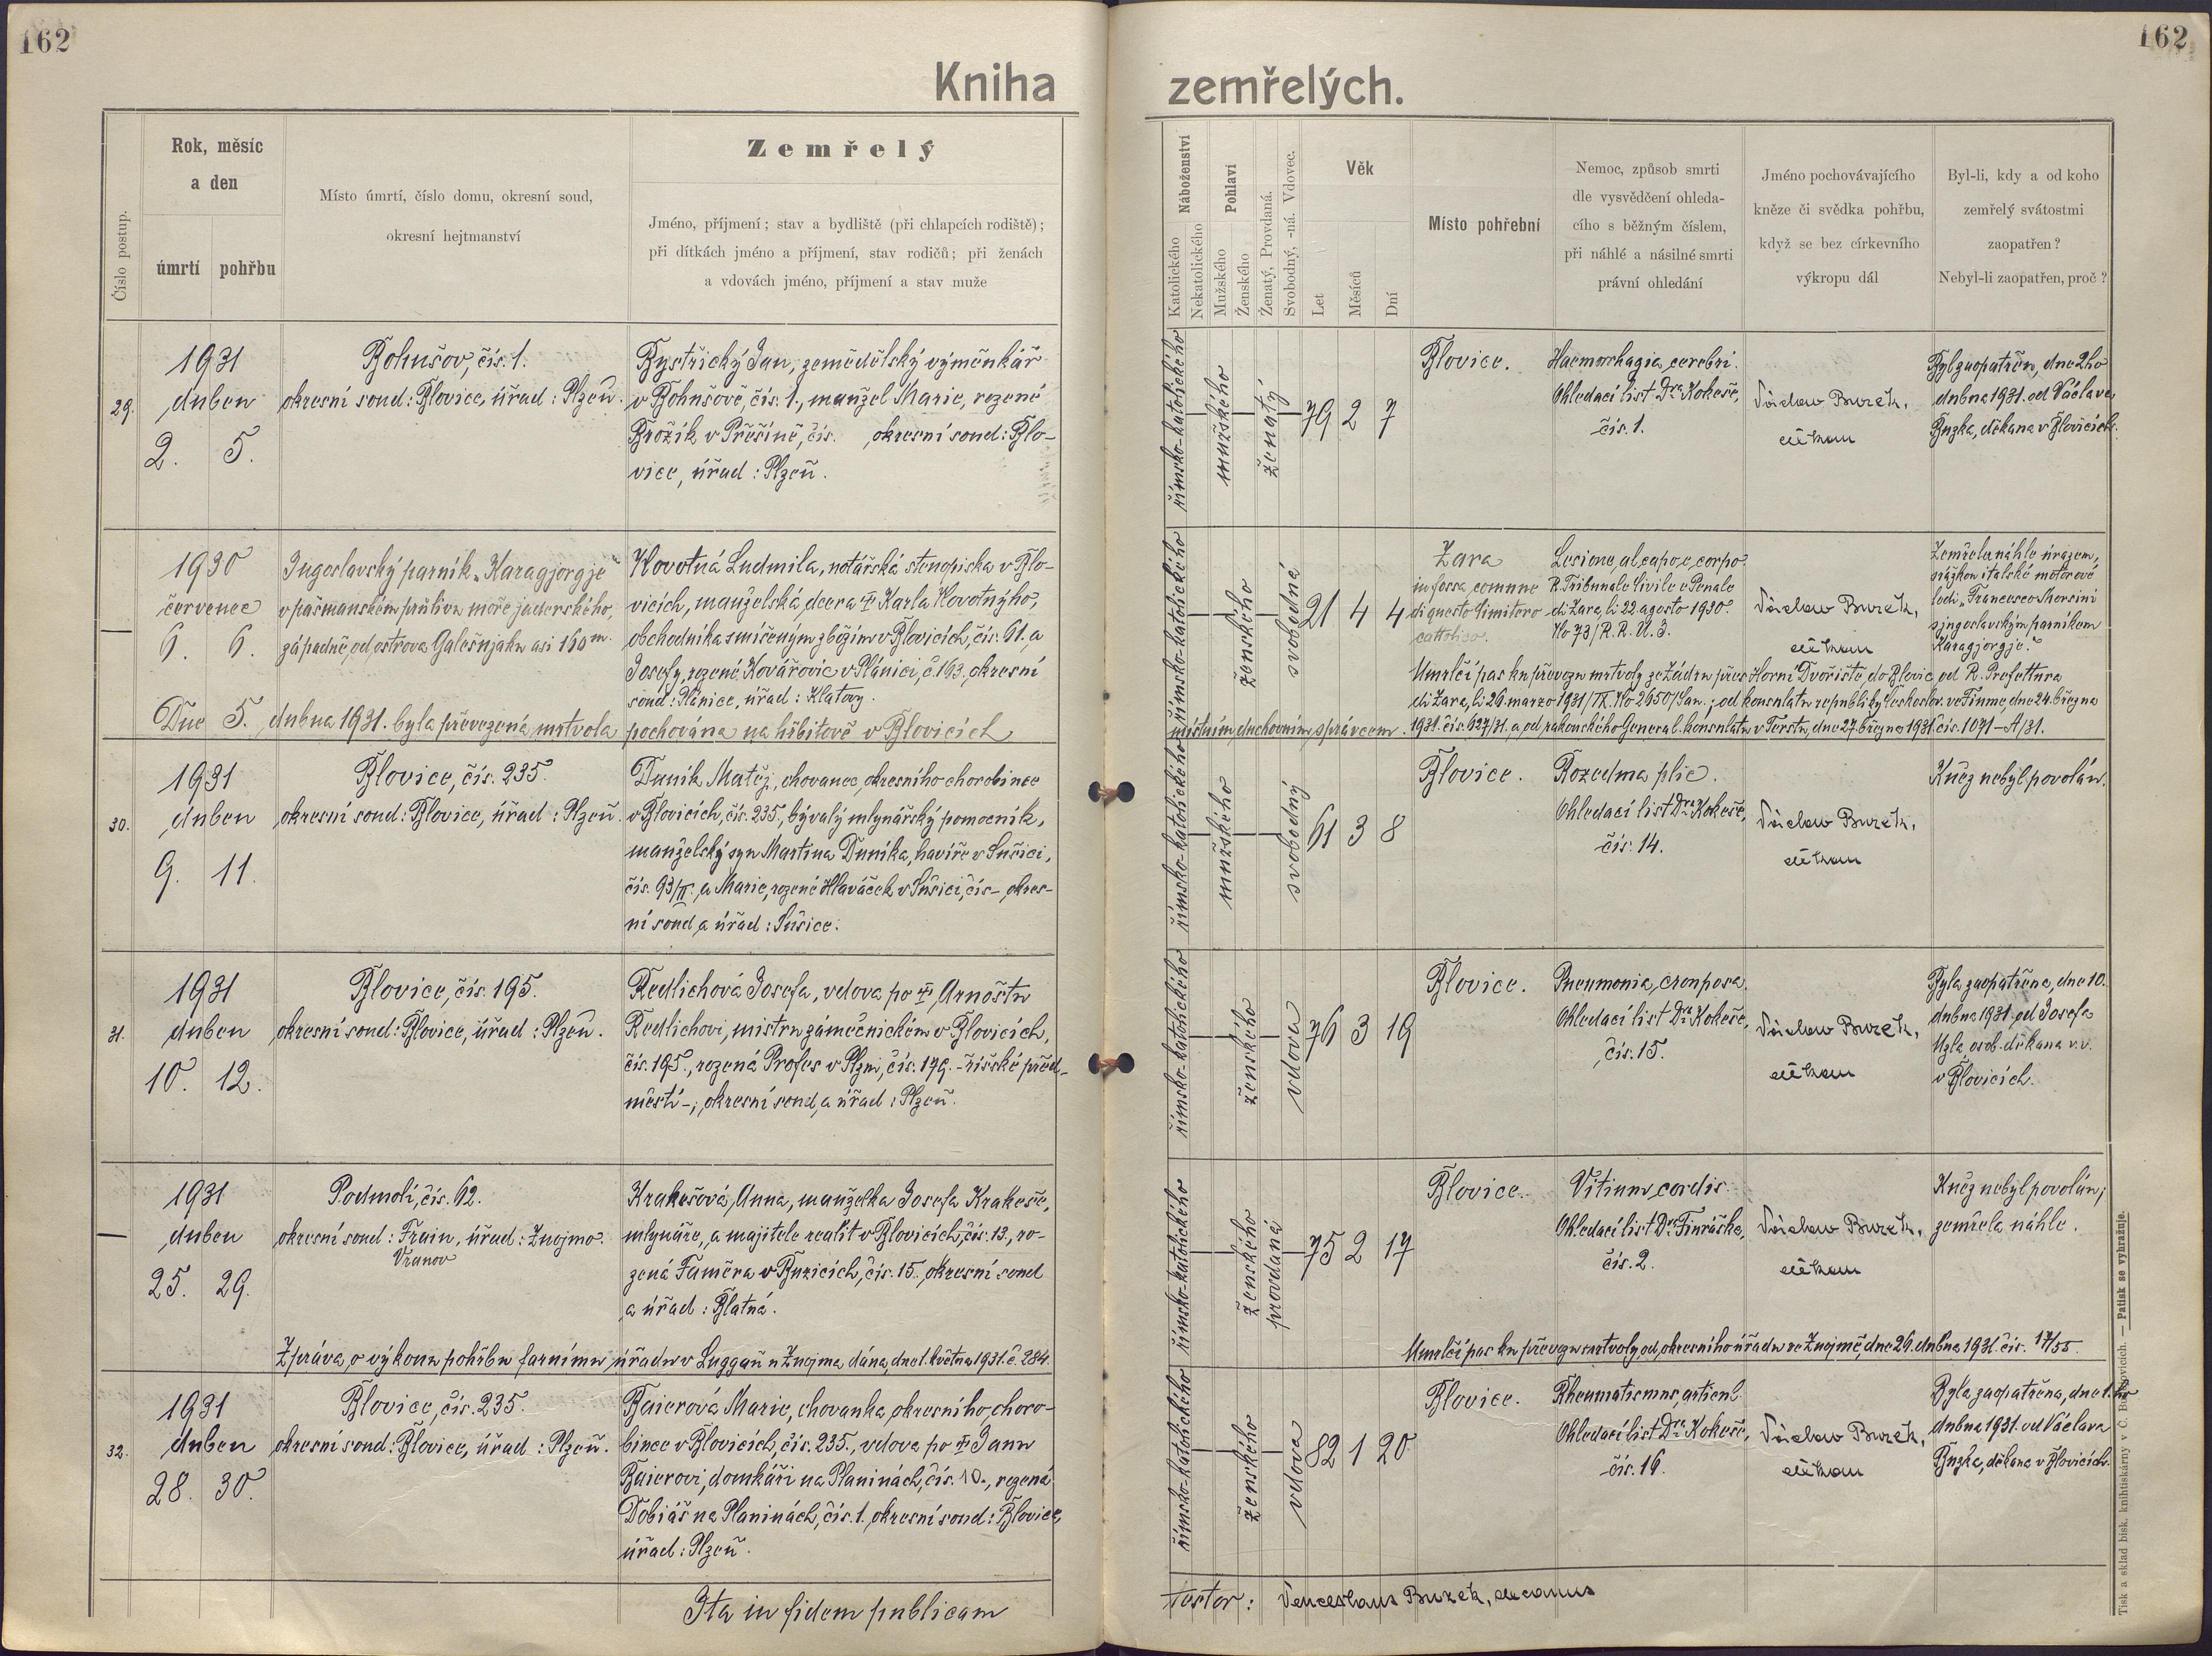 162
162
Kniha zemřelých.
Číslo postup.
Rok, měsíc
a den
úmrtí
pohřbu
Místo úmrtí, číslo domu, okresní soud,
okresní hejtmanství
Zemřelý
Jméno, příjmení; stav a bydliště (při chlapcích rodiště);
při dítkách jméno a příjmení, stav rodičů; při ženách
a vdovách jméno, příjmení a stav muže
Náboženství
Katolického
Nekatolického
Pohlaví
Mužského
Ženského
Ženatý, Provdaná.
Svobodný, -ná. Vdovec.
Věk
Let
Měsíců
Dní
Místo pohřební
Nemoc, způsob smrti
dle vysvědčení ohleda-
cího s běžným číslem,
při náhlé a násilné smrti
právní ohledání
Jméno pochovávajícího
kněze či svědka pohřbu,
když se bez církevního
výkropu dál
Byl-li, kdy a od koho
zemřelý svátostmi
zaopatřen?
Nebyl-li zaopatřen, proč?
29.
1931
duben
2. 5.
Bohušov, čís. 1.
okresní soud: Blovice, úřad: Plzeň.
Bystřický Jan, zemědělský výměnkář
v Bohušově, čís. 1., manžel Marie, rozené
Brožík v Přešíně, čís. okresní soud: Blo-
vice, úřad: Plzeň.
římsko-katolického
mužského
ženatý
79 2 7
Blovice.
Haemorhagia cerebri.
Ohledací list Dra Kokeše,
čís. 1.
Václav Buzek,
děkan
Byl zaopatřen, dne 2ho
dubna 1931. od Václava
Buzka, děkana v Blovicích.
—
1930
červenec
6. 6.
Jugoslavský parník „Karagjorgje“
v pašmanském průlivu moře jaderského,
západně, od ostrova Galešnjaku asi 160 m.
Novotná Ludmila, notářská stenopiska v Blo-
vicích, manželská dcera † Karla Novotného,
obchodníka smíšeným zbožím v Blovicích, čís. 61. a
Josefy, rozené Kovářovic v Plánici, č. 163, okresní
soud: Plánice, úřad: Klatovy.
Dne 5. dubna 1931. byla převezená mrtvola pochována na hřbitově v Blovicích
místním duchovním správcem.
římsko-katolického
ženského
svobodná
21 4 4
Zara
in fossa comune
di questo Cimitero
cattolico.
Lesione al capo e corpo.
R. Tribunale Civile e Penale
di Zara, li 22 agosto 1930.
No 73/R. R. U. 3.
Václav Buzek,
děkan
Zemřela náhle úrazem,
srážkou italské motorové
lodi „Francesco Morosini
s jugoslavským parníkem
Karagjorgje.“
Umrlčí pas ku převozu mrtvoly ze Zádru přes Horní Dvořiště do Blovic, od R. Prefettura
di Zara, li 26 marzo 1931/IX. No 2650/San.; od konsulatu republiky Českoslov. ve Fiume, dne 24. března
1931. čís. 627/31. a od rakouského General. konsulatu v Terstu, dne 27. března 1931. čís. 1071-A/31.
30.
1931
duben
9. 11.
Blovice, čís. 235.
okresní soud: Blovice, úřad: Plzeň.
Duník Matěj, chovanec okresního chorobince
v Blovicích, čís. 235., bývalý mlynářský pomocník,
manželský syn Martina Duníka, havíře v Sušici,
čís. 93/II. a Marie, rozené Hlaváček v Sušici, čís - okres-
ní soud a úřad: Sušice.
římsko-katolického
mužského
svobodný
61 3 8
Blovice.
Rozedma plic.
Ohledací list Dra Kokeše,
čís. 14.
Václav Buzek,
děkan
Kněz nebyl povolán.
31.
1931
duben
10. 12.
Blovice, čís. 195.
okresní soud: Blovice, úřad: Plzeň.
Redlichová Josefa, vdova po † Arnoštu
Redlichovi, mistru zámečnickém v Blovicích,
čís. 195., rozená Profes v Plzni, čís. 179. - říšské před-
městí -; okresní soud a úřad: Plzeň.
římsko-katolického
ženského
vdova
76 3 19
Blovice.
Pneumonia crouposa.
Ohledací list Dra Kokeše,
čís. 15.
Václav Buzek,
děkan
Byla zaopatřena, dne 10.
dubna 1931. od Josefa
Uzla, osob. děkana v. v.
v Blovicích.
—
1931
duben
25. 29.
Podmolí, čís. 62.
okresní soud: Frain, úřad: Znojmo.
Vranov
Krakešová Anna, manželka Josefa Krakeše,
mlynáře, a majitele realit v Blovicích, čís. 13., ro-
zená Faměra v Buzicích, čís. 15., okresní soud
a úřad: Blatná.
Zpráva o výkonu pohřbu farnímu úřadu v Luggau u Znojma dána, dne 1. května 1931. č. 284.
římsko-katolického
ženského
provdaná
75 2 17
Blovice.
Vitium cordis.
Ohledací list Dra Finráška,
čís. 2.
Václav Buzek,
děkan
Kněz nebyl povolán;
zemřela náhle.
Umrlčí pas ku převozu mrtvoly, od okresního úřadu ve Znojmě, dne 26. dubna 1931. čís. 17/55.
32.
1931
duben
28. 30.
Blovice, čís. 235.
okresní soud: Blovice, úřad: Plzeň.
Baierová Marie, chovanka okresního choro-
bince v Blovicích, čís. 235., vdova po † Janu
Baierovi, domkáři na Planinách, čís. 10., rozená
Tobiáš na Planinách, čís. 1. okresní soud: Blovice,
úřad: Plzeň.
římsko-katolického
ženského
vdova
82 1 20
Blovice.
Rheumatismus articul.
Ohledací list Dra Kokeše,
čís. 16.
Václav Buzek,
děkan
Byla zaopatřena, dne 1.ho
dubna 1931. od Václava
Buzka, děkana v Blovicích.
Ita in fidem publicam
testor: Venceslaus Buzek, decanus
Tisk a sklad bisk. knihtiskárny v Č. Budějovicích. — Patisk se vyhražuje.